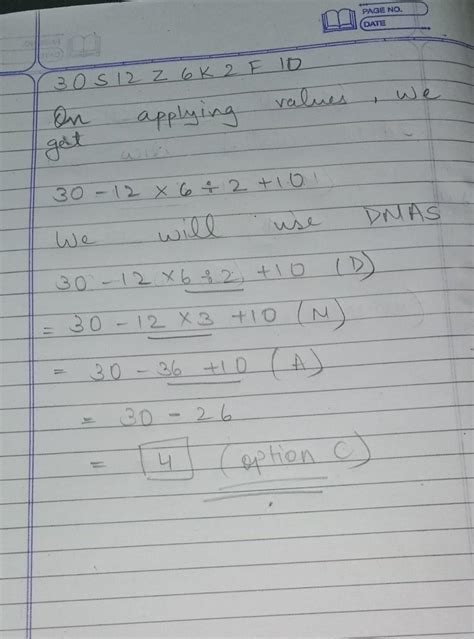 PAGE NO.
DATE
30 S 12 Z 6 K 2 F 10
On applying values, we
get
30 - 12 × 6 ÷ 2 + 10
We will use DMAS
30 - 12 × 6 ÷ 2 + 10 (D)
= 30 - 12 × 3 + 10 (M)
= 30 - 36 + 10 (A)
= 30 - 26
= 4 (option C)